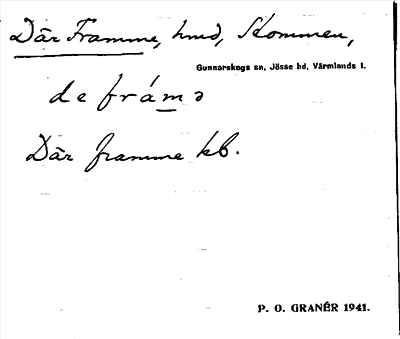 Där Framme, hmd, Skommen,
Gunnarskogs sn, Jösse hd, Värmlands l.
de frámə
Där framme kb.
P. O. GRANÉR 1941.